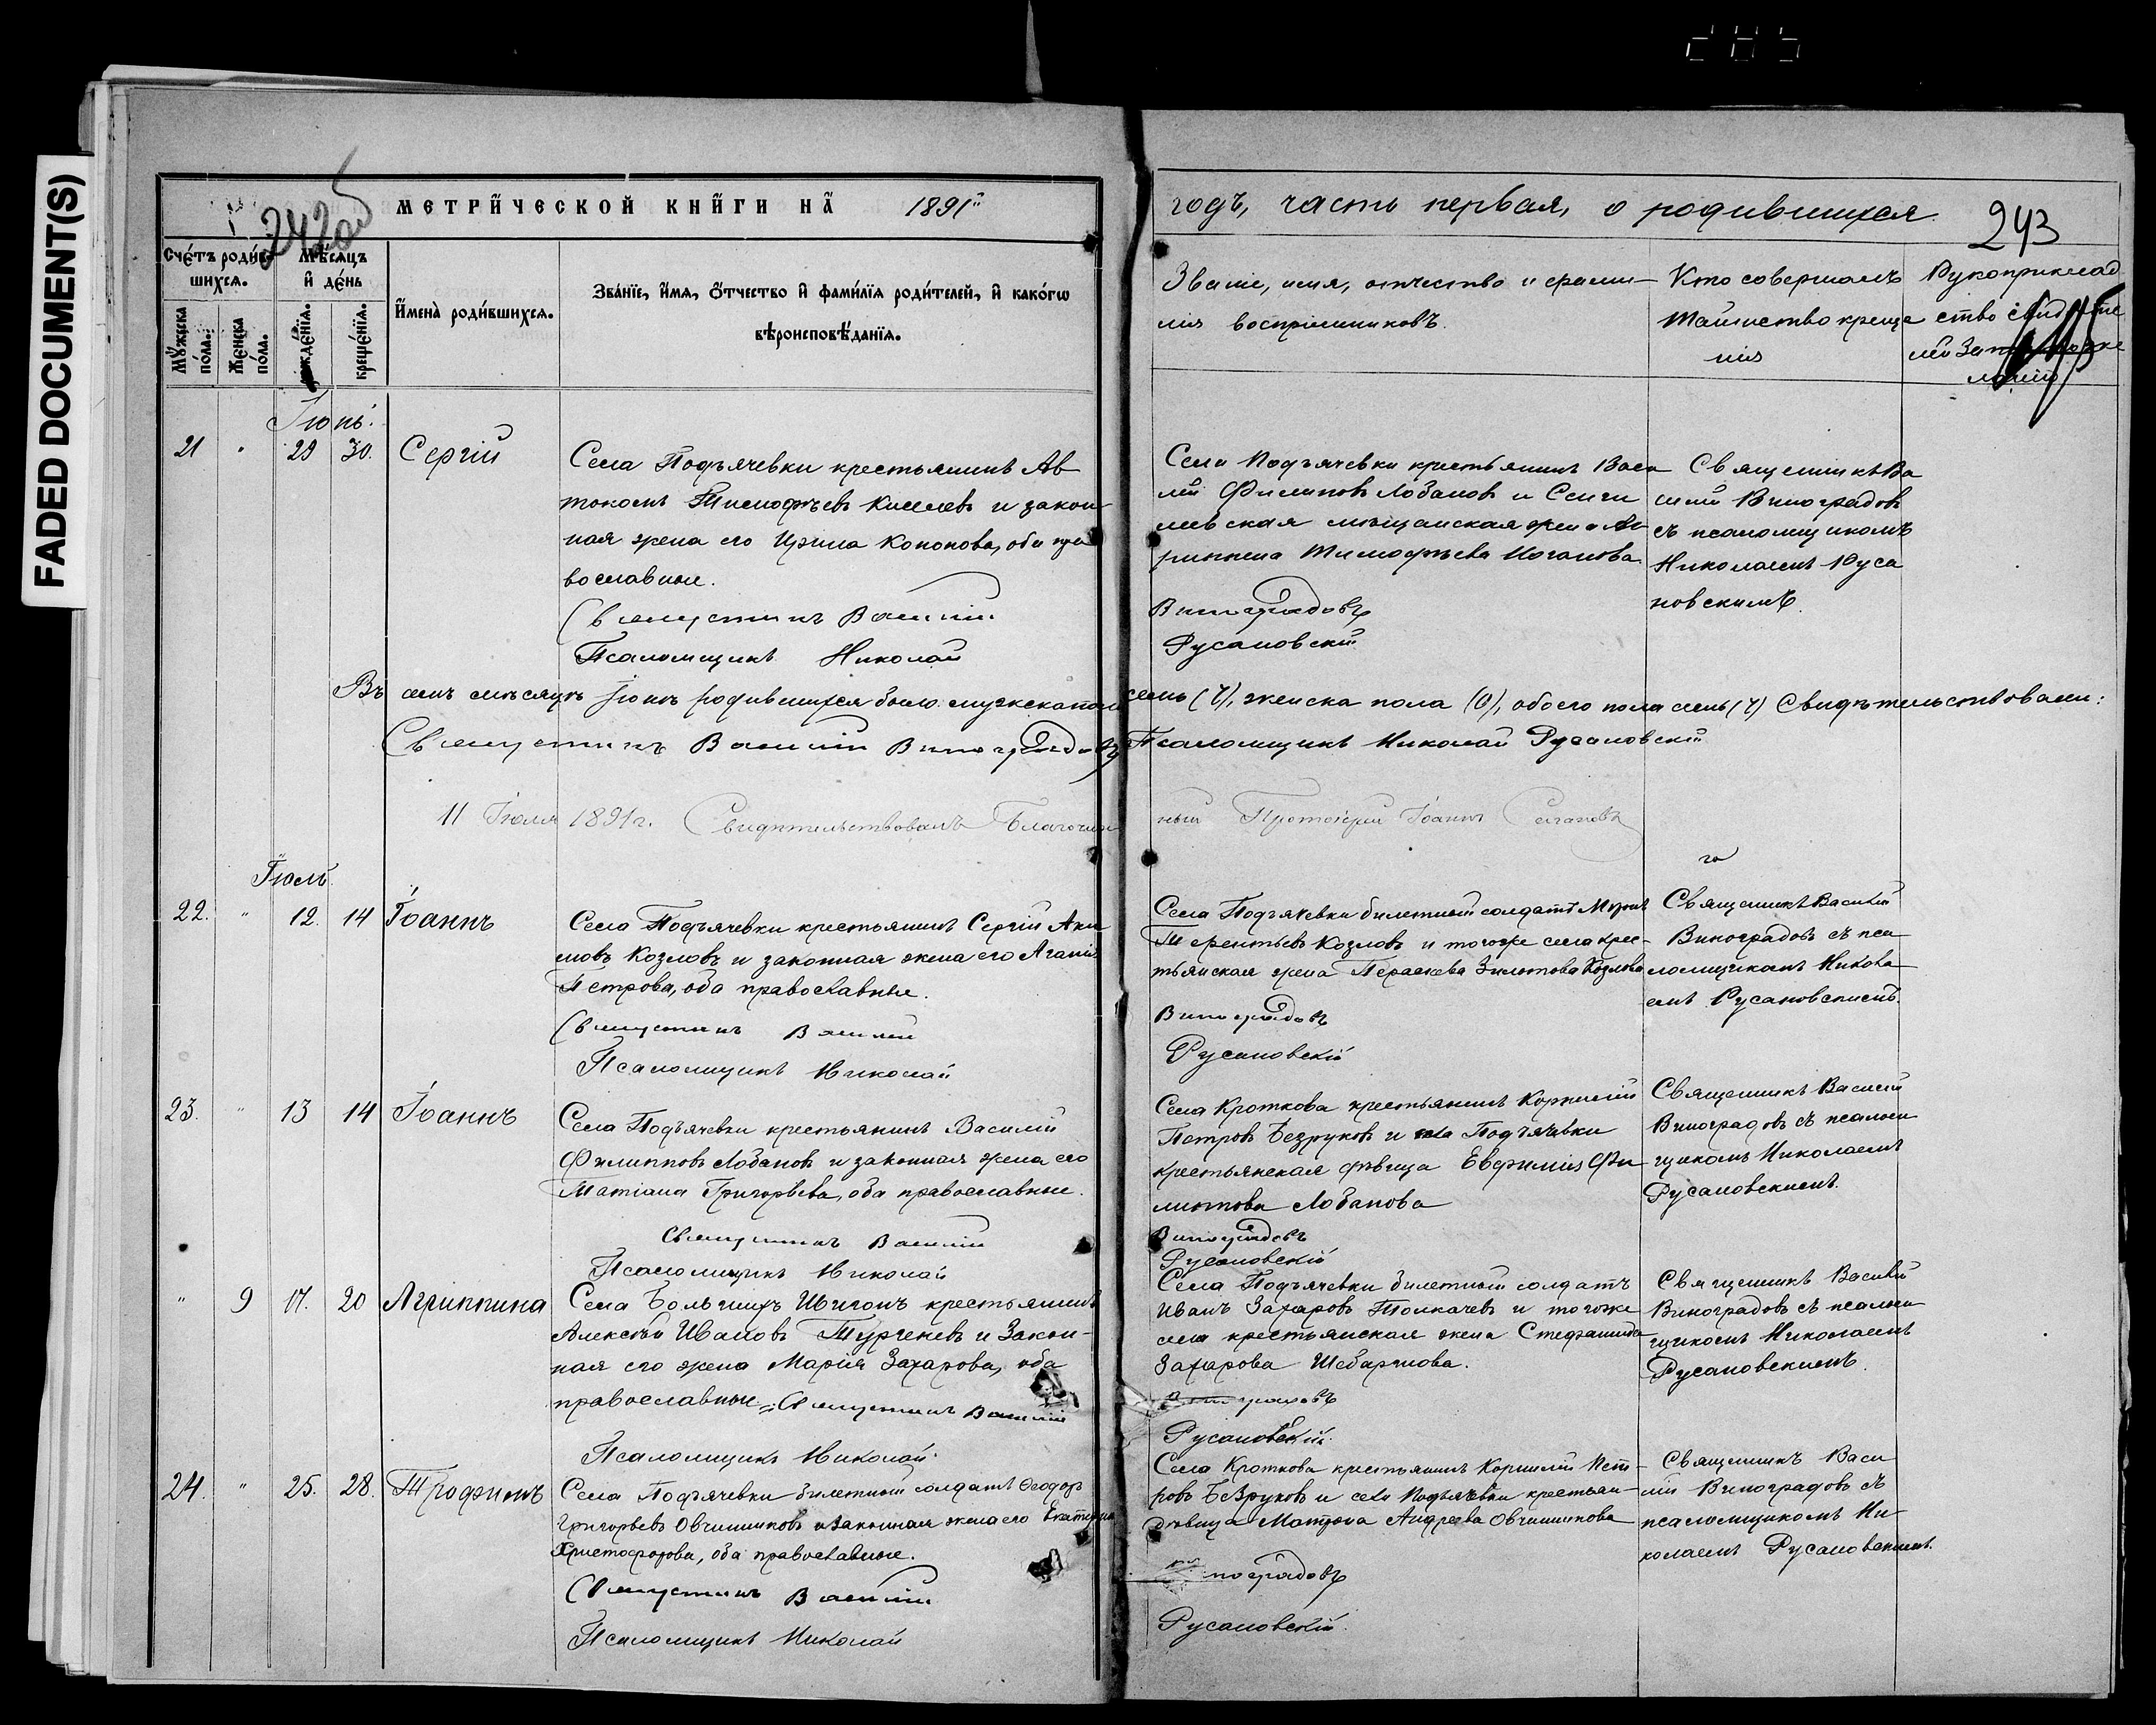 FADED DOCUMENT(S)
МЕТРИ́ЧЕСКОЙ КНИ́ГИ НА̀ 1891й
годъ, часть первая, о родившихся. 243
242об
Сче́тъ роди́в-
шихся.
Мѣ́сяцъ
и҆ де́нь
Мꙋ́жеска
по́ла.
Же́нска
по́ла.
рожде́нїѧ.
креще́нїѧ.
И҆мена̀ роди́вшихся.
Зва́нїе, и҆́мѧ, ѻ҆́тчество и҆ фами́лїѧ роди́телей, и҆ како́гѡ
вѣроисповѣ́данїѧ.
Званіе, имя, отчество и фами-
лія воспріемниковъ.
Кто совершалъ
таинство креще
нія
Рукоприклад
ство свидѣте
лей
Іюнь.
21 " 29 30. Сергій
Села Подъячевки крестьянинъ Ав
тономъ Тимофѣевъ Киселевъ и закон-
ная жена его Ирина Кононова, оба пра
вославные.
Священникъ Василій
Псаломщикъ Николай
Села Подъячевки крестьянинъ Васи
лій Филиповъ Лобановъ и Сенги
леевская мѣщанская жена Аг
риппина Тимофѣева
Виноградовъ
Русановскій
Священникъ Ва
силій Виноградовъ
съ псаломщикомъ
Николаемъ Руса
новскимъ.
Въ семъ мѣсяцѣ Іюнѣ родившихся было: мужска пола семь (7), женска пола (0), обоего пола семь (7) Свидѣтельствовали:
Священникъ Василій Виноградовъ Псаломщикъ Николай Русановскій
11 Іюля 1891 г. Свидѣтельствовалъ Благочин
ный Протоіерей Іоаннъ
Іюль.
22. " 12. 14 Іоаннъ
Села Подъячевки крестьянинъ Сергій Аки
мовъ Козловъ и законная жена его Агапія
Петрова, оба православные.
Священникъ Василій
Псаломщикъ Николай
Села Подъячевки билетный солдатъ
Терентьевъ Козловъ и тогоже села крес-
тьянская жена Параскева Козлова
Виноградовъ
Русановскій
Священникъ Василій
Виноградовъ съ пса
ломщикомъ Никола
емъ Русановскимъ.
23. " 13 14 Іоаннъ
Села Подъячевки крестьянинъ Василій
Филипповъ Лобановъ и законная жена его
Матіана Григорьева, оба православные.
Священникъ Василій
Псаломщикъ Николай
Села Кроткова крестьянинъ Корнилій
Петровъ Безруковъ и села Подъячевки
крестьянская дѣвица Евфимія Фи
липпова Лобанова
Виноградовъ
Русановскій
Священникъ Василій
Виноградовъ съ псалом
щикомъ Николаемъ
Русановскимъ.
" 9 17. 20 Агриппина
Села Большихъ крестьянинъ
Алексѣй Ивановъ Тургеневъ и Закон-
ная его жена Марія Захарова, оба
православные = Священникъ Василій
Псаломщикъ Николай
Села Подъячевки билетный солдатъ
Иванъ Захаровъ Толкачевъ и тогоже
села крестьянская жена Стефанида
Захарова
Виноградовъ
Русановскій
Священникъ Василій
Виноградовъ съ псалом
щикомъ Николаемъ
Русановскимъ.
24. " 25. 28. Трофимъ
Села Подъячевки билетный солдатъ Ѳеодоръ
Григорьевъ Овчинниковъ и законная жена его Екатерина
Христофорова, оба православные.
Священникъ Василій
Псаломщикъ Николай
Села Кроткова крестьянинъ Корнилій Пет-
ровъ Безруковъ и села Подъячевки крестьян-
дѣвица Матрона Андреева Овчинникова
Виноградовъ
Русановскій
Священникъ Васи
лій Виноградовъ съ
псаломщикомъ Ни-
колаемъ Русановскимъ.